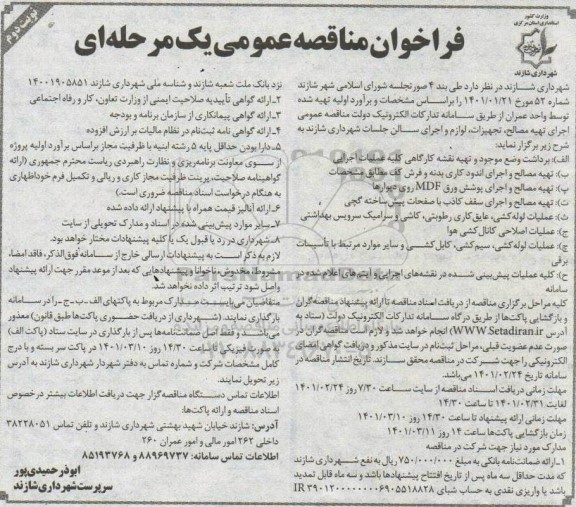 نوبت دوم
وزارت کشور
استانداری استان مرکزی
شهرداری شازند
فراخوان مناقصه عمومی یک مرحله‌ای
شهرداری شازند در نظر دارد طی بند ۴ صورتجلسه شورای اسلامی شهر شازند
شماره ۵۲ مورخ ۱۴۰۱/۰۱/۲۱ را براساس مشخصات و برآورد اولیه تهیه شده
توسط واحد عمران از طریق سامانه تدارکات الکترونیک دولت مناقصه عمومی
اجرای تهیه مصالح، تجهیزات، لوازم و اجرای سالن جلسات شهرداری شازند به
شرح زیر برگزار نماید:
الف: برداشت وضع موجود و تهیه نقشه کارگاهی کلیه عملیات اجرایی
ب: تهیه مصالح و اجرای اندود کاری بدنه و فرش کف مطابق مشخصات
پ: تهیه مصالح و اجرای پوشش ورق MDF روی دیوارها
ت: تهیه مصالح و اجرای سقف کاذب با صفحات پیش‌ساخته گچی
ث: عملیات لوله‌کشی، عایق کاری رطوبتی، کاشی و سرامیک سرویس بهداشتی
ج: عملیات اصلاحی کانال کشی هوا
چ: عملیات لوله‌کشی، سیم‌کشی، کابل کشی و سایر موارد مرتبط با تأسیسات
برقی
ح: کلیه عملیات پیش‌بینی شده در نقشه‌های اجرایی و آیتم‌های اعلام شده در
سامانه
کلیه مراحل برگزاری مناقصه از دریافت اسناد مناقصه تا ارائه پیشنهاد مناقصه‌گران
و بازگشایی پاکت‌ها از طریق درگاه سامانه تدارکات الکترونیک دولت (ستاد به
آدرس WWW.Setadiran.ir) انجام خواهد شد و لازم است مناقصه‌گران در
صورت عدم عضویت قبلی، مراحل ثبت‌نام در سایت مذکور و دریافت گواهی امضای
الکترونیکی را جهت شرکت در مناقصه محقق سازند. تاریخ انتشار مناقصه در
سامانه تاریخ ۱۴۰۱/۰۲/۲۴ می‌باشد.
مهلت زمانی دریافت اسناد مناقصه از سایت ساعت ۷/۳۰ روز ۱۴۰۱/۰۲/۲۴
لغایت ۱۴۰۱/۰۲/۳۱ تا ساعت ۱۴/۳۰
مهلت زمانی ارائه پیشنهاد تا ساعت ۱۴/۳۰ روز ۱۴۰۱/۰۳/۱۰
زمان بازگشایی پاکت‌ها ساعت ۱۴ روز ۱۴۰۱/۰۳/۱۱
مدارک مورد نیاز جهت شرکت در مناقصه
۱ـ ارائه ضمانت‌نامه بانکی به مبلغ ۷۵۰/۰۰۰/۰۰۰ ریال به نفع شهرداری شازند
که مدت حداقل سه ماه پس از تاریخ افتتاح پیشنهادها باشد و سه ماه قابل تمدید
باشد یا واریزی نقدی به حساب شبای IR ۳۹۰۱۲۰۰۰۰۰۰۰۰۶۹۰۵۵۱۸۸۲۸
نزد بانک ملت شعبه شازند و شناسه ملی شهرداری شازند ۱۴۰۰۱۹۰۵۸۵۱
۲ـ ارائه گواهی تأییدیه صلاحیت ایمنی از وزارت تعاون، کار و رفاه اجتماعی
۳ـ ارائه گواهی پیمانکاری از سازمان برنامه و بودجه
۴ـ ارائه گواهی نامه ثبت‌نام در نظام مالیات بر ارزش افزوده
۵ـ دارا بودن حداقل پایه ۵ رشته ابنیه با ظرفیت مجاز براساس برآورد اولیه پروژه
از سوی معاونت برنامه‌ریزی و نظارت راهبردی ریاست محترم جمهوری (ارائه
گواهینامه صلاحیت، پرینت ظرفیت مجاز کاری و ریالی و تکمیل فرم خوداظهاری
به هنگام درخواست اسناد مناقصه ضروری است)
۶ـ ارائه آنالیز قیمت همراه با پیشنهاد ارائه داده شده
۷ـ سایر موارد پیش‌بینی شده در اسناد و مدارک تحویلی از سایت
۸ـ شهرداری در رد یا قبول یک یا کلیه پیشنهادات مختار خواهد بود.
لازم به ذکر است به پیشنهادات ارسالی خارج از سامانه فوق‌الذکر، فاقد امضا،
مشروط، مخدوش، ناخوانا و پیشنهادهایی که بعد از موعد مقرر جهت ارائه پیشنهاد
وصول شود ترتیب اثر داده نخواهد شد.
متقاضیان می‌بایست مدارک مربوط به پاکتهای الف ـ ب ـ ج ـ را در سامانه
بارگذاری نمایند. (شهرداری از دریافت حضوری پاکت‌ها طبق قانون) معذور
می‌باشد و فقط اصل ضمانت‌نامه‌ها پس از بارگذاری در سایت ستاد (پاکت الف)
به صورت فیزیکی تا ساعت ۱۴/۳۰ روز ۱۴۰۱/۰۳/۱۰ در پاکت سربسته و با درج
کامل مشخصات شرکت و شماره تماس به دفتر شهردار شهرداری شازند به آدرس
زیر تحویل نمایند.
اطلاعات تماس دستگاه مناقصه‌گزار جهت دریافت اطلاعات بیشتر در خصوص
اسناد مناقصه و ارائه پاکت‌ها:
آدرس: شازند خیابان شهید بهشتی شهرداری شازند و تلفن تماس ۳۸۲۲۸۰۵۱
داخلی ۲۶۲ امور مالی و امور عمران ۲۶۰
اطلاعات تماس سامانه: ۸۸۹۶۹۷۳۷ و ۸۵۱۹۳۷۶۸
ابوذر حمیدی‌پور
سرپرست شهرداری شازند